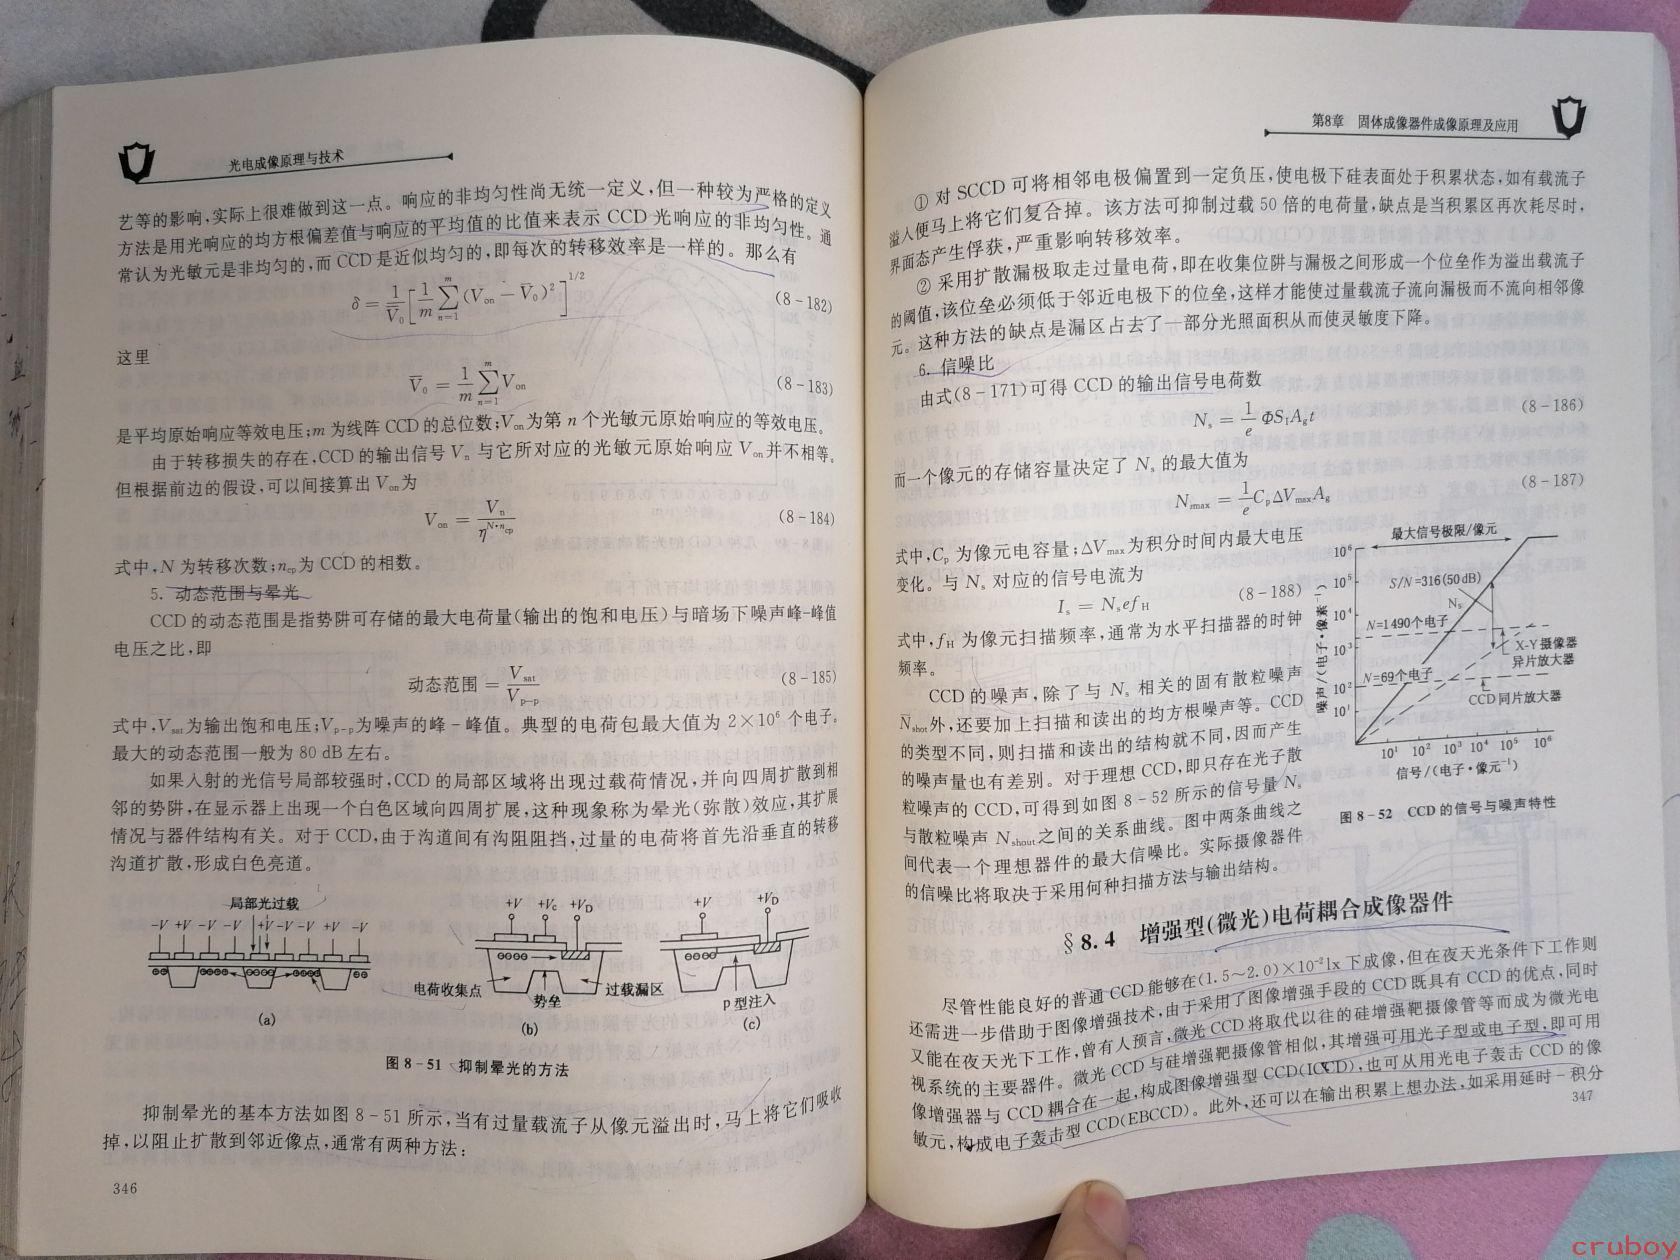 光电成像原理与技术
艺等的影响,实际上很难做到这一点。响应的非均匀性尚无统一定义,但一种较为严格的定义
方法是用光响应的均方根偏差值与响应的平均值的比值来表示 CCD 光响应的非均匀性。通
常认为光敏元是非均匀的,而 CCD 是近似均匀的,即每次的转移效率是一样的。那么有
δ = 1/V̄₀ [1/m ∑ₙ₌₁ᵐ (Vₒₙ − V̄₀)²]^1/2 (8-182)
这里
V̄₀ = 1/m ∑ₙ₌₁ᵐ Vₒₙ (8-183)
是平均原始响应等效电压;m 为线阵 CCD 的总位数;Vₒₙ为第 n 个光敏元原始响应的等效电压。
由于转移损失的存在,CCD 的输出信号 Vₙ 与它所对应的光敏元原始响应 Vₒₙ并不相等。
但根据前边的假设,可以间接算出 Vₒₙ为
Vₒₙ = Vₙ/η^(N·n_cp) (8-184)
式中,N 为转移次数;n_cp为 CCD 的相数。
5. 动态范围与晕光
CCD 的动态范围是指势阱可存储的最大电荷量(输出的饱和电压)与暗场下噪声峰-峰值
电压之比,即
动态范围 = V_sat/V_p-p (8-185)
式中,V_sat为输出饱和电压;V_p-p为噪声的峰-峰值。典型的电荷包最大值为 2×10⁶ 个电子。
最大的动态范围一般为 80 dB 左右。
如果入射的光信号局部较强时,CCD 的局部区域将出现过载荷情况,并向四周扩散到相
邻的势阱,在显示器上出现一个白色区域向四周扩展,这种现象称为晕光(弥散)效应,其扩展
情况与器件结构有关。对于 CCD,由于沟道间有沟阻阻挡,过量的电荷将首先沿垂直的转移
沟道扩散,形成白色亮道。
局部光过载
-V +V -V -V +V -V -V +V -V
+V +Vc +V_D
+V +V_D
电荷收集点 势垒 过载漏区
p 型注入
(a) (b) (c)
图 8-51 抑制晕光的方法
抑制晕光的基本方法如图 8-51 所示,当有过量载流子从像元溢出时,马上将它们吸收
掉,以阻止扩散到邻近像点,通常有两种方法:
346
第8章 固体成像器件成像原理及应用
① 对 SCCD 可将相邻电极偏置到一定负压,使电极下硅表面处于积累状态,如有载流子
溢入便马上将它们复合掉。该方法可抑制过载 50 倍的电荷量,缺点是当积累区再次耗尽时,
界面态产生俘获,严重影响转移效率。
② 采用扩散漏极取走过量电荷,即在收集位阱与漏极之间形成一个位垒作为溢出载流子
的阈值,该位垒必须低于邻近电极下的位垒,这样才能使过量载流子流向漏极而不流向相邻像
元。这种方法的缺点是漏区占去了一部分光照面积从而使灵敏度下降。
6. 信噪比
由式(8-171)可得 CCD 的输出信号电荷数
N_s = 1/e ΦS_I A_g t (8-186)
而一个像元的存储容量决定了 N_s 的最大值为
N_smax = 1/e C_p ΔV_max A_g (8-187)
式中,C_p 为像元电容量;ΔV_max为积分时间内最大电压
变化。与 N_s 对应的信号电流为
I_s = N_s e f_H (8-188)
式中,f_H 为像元扫描频率,通常为水平扫描器的时钟
频率。
CCD 的噪声,除了与 N_s 相关的固有散粒噪声
N_shot外,还要加上扫描和读出的均方根噪声等。CCD
的类型不同,则扫描和读出的结构就不同,因而产生
的噪声量也有差别。对于理想 CCD,即只存在光子散
粒噪声的 CCD,可得到如图 8-52 所示的信号量 N_s
与散粒噪声 N_shout之间的关系曲线。图中两条曲线之
间代表一个理想器件的最大信噪比。实际摄像器件
的信噪比将取决于采用何种扫描方法与输出结构。
最大信号极限/像元
S/N=316(50 dB)
N_s
N=1490个电子
X-Y 摄像器
异片放大器
N=69个电子
CCD 同片放大器
噪声/(电子·像素⁻¹)
10⁶
10⁵
10⁴
10³
10²
10¹
10¹ 10² 10³ 10⁴ 10⁵ 10⁶
信号/(电子·像元⁻¹)
图 8-52 CCD 的信号与噪声特性
§8.4 增强型(微光)电荷耦合成像器件
尽管性能良好的普通 CCD 能够在(1.5～2.0)×10⁻²lx 下成像,但在夜天光条件下工作则
还需进一步借助于图像增强技术,由于采用了图像增强手段的 CCD 既具有 CCD 的优点,同时
又能在夜天光下工作,曾有人预言,微光 CCD 将取代以往的硅增强靶摄像管等而成为微光电
视系统的主要器件。微光 CCD 与硅增强靶摄像管相似,其增强可用光子型或电子型,即可用
像增强器与 CCD 耦合在一起,构成图像增强型 CCD(ICCD),也可从用光电子轰击 CCD 的像
敏元,构成电子轰击型 CCD(EBCCD)。此外,还可以在输出积累上想办法,如采用延时-积分
347
cruboy